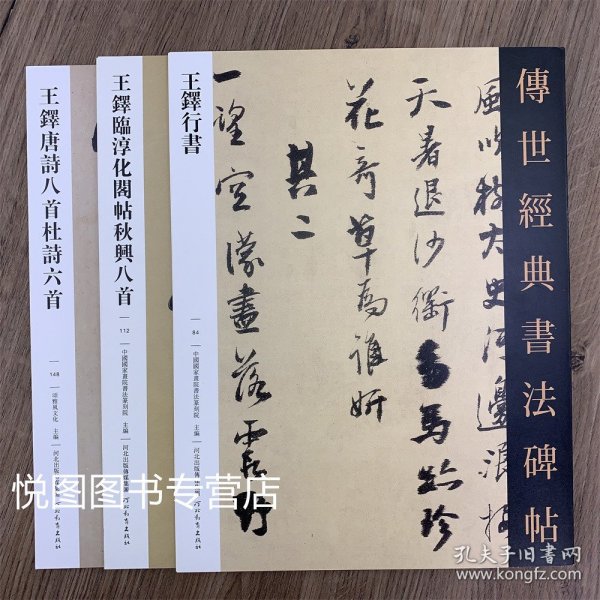 傳世經典書法碑帖
風吹
天暑退沙衢
馬
珍
花奇草
為雅妍
其二
一望空濛畫落霞
王鐸行書
84
中國國家畫院書法篆刻院 主編
河北出版傳媒集團 河北教育出版社
王鐸臨淳化閣帖秋興八首
112
中國國家畫院書法篆刻院 主編
河北出版傳媒集團 河北教育出版社
王鐸唐詩八首杜詩六首
148
頌雅風文化 主編
河北出版傳媒集團 河北教育出版社
悦图图书专营店
孔夫子旧书网
www.kongfz.com